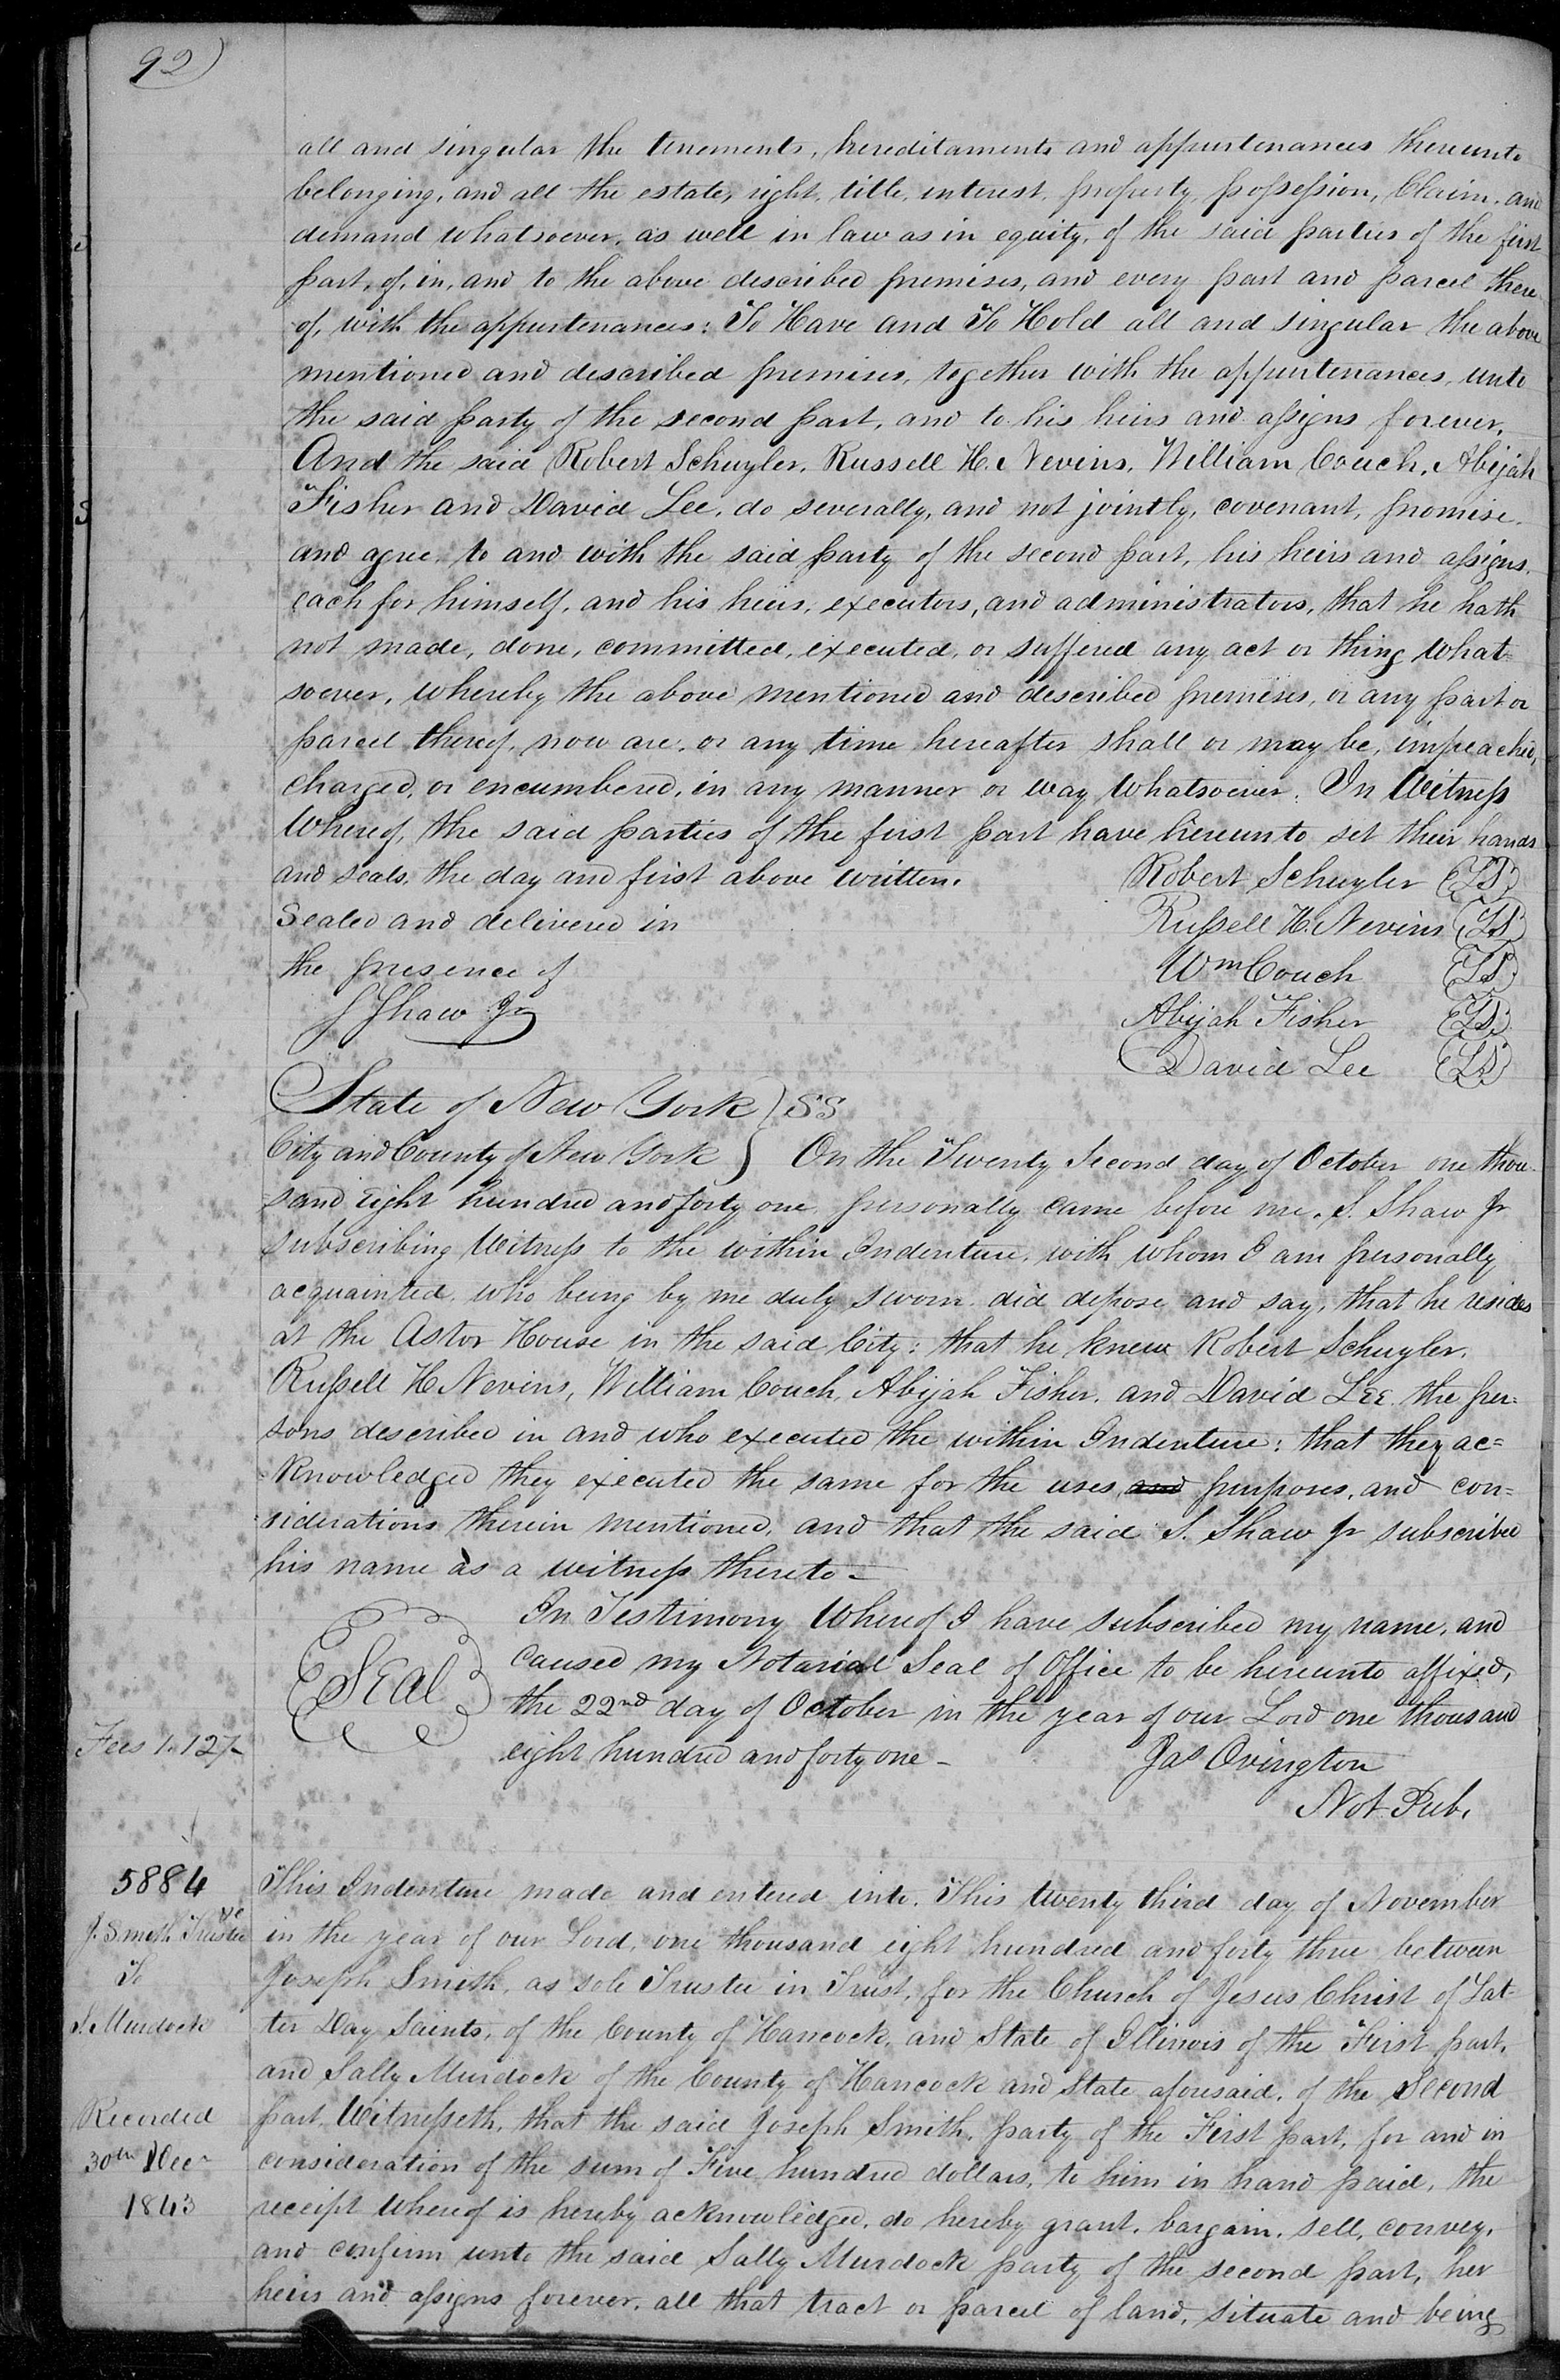 92)
all and singular the tenements, hereditaments and appurtenances thereunto
belonging, and all the estate, right, title, interest, property, possession, Claim, and
demand whatsoever, as well in law as in equity, of the said parties of the first
part, of, in, and to the above described premises, and every part and parcel there
of, with the appurtenances: To Have and To Hold all and singular the above
mentioned and described premises, together with the appurtenances, unto
the said party of the second part, and to his heirs and assigns forever.
And the said Robert Schuyler, Russell H. Nevins, William Couch, Abijah
Fisher and David Lee, do severally, and not jointly, covenant, promise,
and agree, to and with the said party of the second part, his heirs and assigns,
each for himself, and his heirs, executors, and administrators, that he hath
not made, done, committed, executed, or suffered any act or thing what=
soever, whereby the above mentioned and described premises, or any part or
parcel thereof, now are, or any time hereafter shall or may be, impeached,
charged, or encumbered, in any manner or way whatsoever. In Witness
Whereof, the said parties of the first part have hereunto set their hands
and seals, the day and first above written.
Robert Schuyler (LS)
Sealed and delivered in
Russell H. Nevins (LS)
the presence of
Wm Couch (LS)
S Shaw Jr
Abijah Fisher (LS)
David Lee (LS)
State of New York } SS
City and County of New York } On the Twenty Second day of October one thou-
sand eight hundred and forty one personally came before me, S. Shaw Jr
subscribing Witness to the within Indenture, with whom I am personally
acquainted, who being by me duly sworn did depose and say, that he resides
at the Astor House in the said City: that he knew Robert Schuyler,
Russell H Nevins, William Couch, Abijah Fisher, and David Lee, the per=
sons described in and who executed the within Indenture: that they ac=
=knowledged they executed the same for the uses, and purposes, and con=
siderations therein mentioned, and that the said S. Shaw Jr subscribed
his name as a witness thereto -
In Testimony Whereof I have subscribed my name, and
caused my Notarial Seal of Office to be hereunto affixed,
Seal
the 22nd day of October in the year of our Lord one thousand
Fees 1.127-
eight hundred and forty one -
Jas Ovington
Not Pub.
5884
This Indenture made and entered into, This twenty third day of November
J. Smith Trustee
in the year of our Lord, one thousand eight hundred and forty three between
To
Joseph Smith, as sole Trustee in Trust, for the Church of Jesus Christ of Lat-
S. Murdock
ter Day Saints, of the County of Hancock, and State of Illinois of the First part,
and Sally Murdock of the County of Hancock and State aforesaid, of the Second
Recorded
part, Witnesseth, that the said Joseph Smith, party of the First part, for and in
30th Decr
consideration of the sum of Five hundred dollars, to him in hand paid, the
1843
receipt whereof is hereby acknowledged, do hereby grant, bargain, sell, convey,
and confirm unto the said Sally Murdock party of the second part, her
heirs and assigns forever, all that tract or parcel of land, situate and being